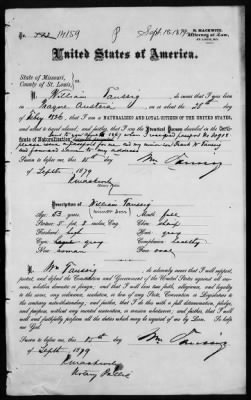 No. 14159
Sept. 15. 1879
R. HACKWITZ,
Attorney at Law,
ST. LOUIS, MO.
United States of America.
State of Missouri,
County of St. Louis,
I, William Taussig, do swear that I was born
in Prague Austria on or about the 28th day
of Feby 1826; that I am a NATURALIZED AND LOYAL CITIZEN OF THE UNITED STATES,
and about to travel abroad; and further, that I am the Identical Person described in the
of Naturalization 1867 when I
please issue a passport for me and my minor son Frank W. Taussig
and forward same to my address
Sworn to before me, this 15th day
of Septbr 1879
Wm Taussig
Notary Public
Description of William Taussig
Age: 53 years
Stature: 5 feet 8 inches, Eng.
Forehead: high
Eyes: gray
Nose: roman
Mouth: full
Chin: sharp
Hair: gray
Complexion: healthy
Face: oval
I, Wm Taussig, do solemnly swear that I will support,
protect, and defend the Constitution and Government of the United States against all enemies,
whether domestic or foreign; and that I will bear true faith, allegiance, and loyalty
to the same, any ordinance, resolution, or law of any State, Convention or Legislature to
the contrary notwithstanding; and further, that I do this with a full determination, pledge,
and purpose, without any mental reservation or evasion whatsoever; and further, that I will
well and faithfully perform all the duties which may be required of me by law. So help
me God.
Sworn to before me, this 15th day
of Septbr 1879
Wm Taussig
Notary Public